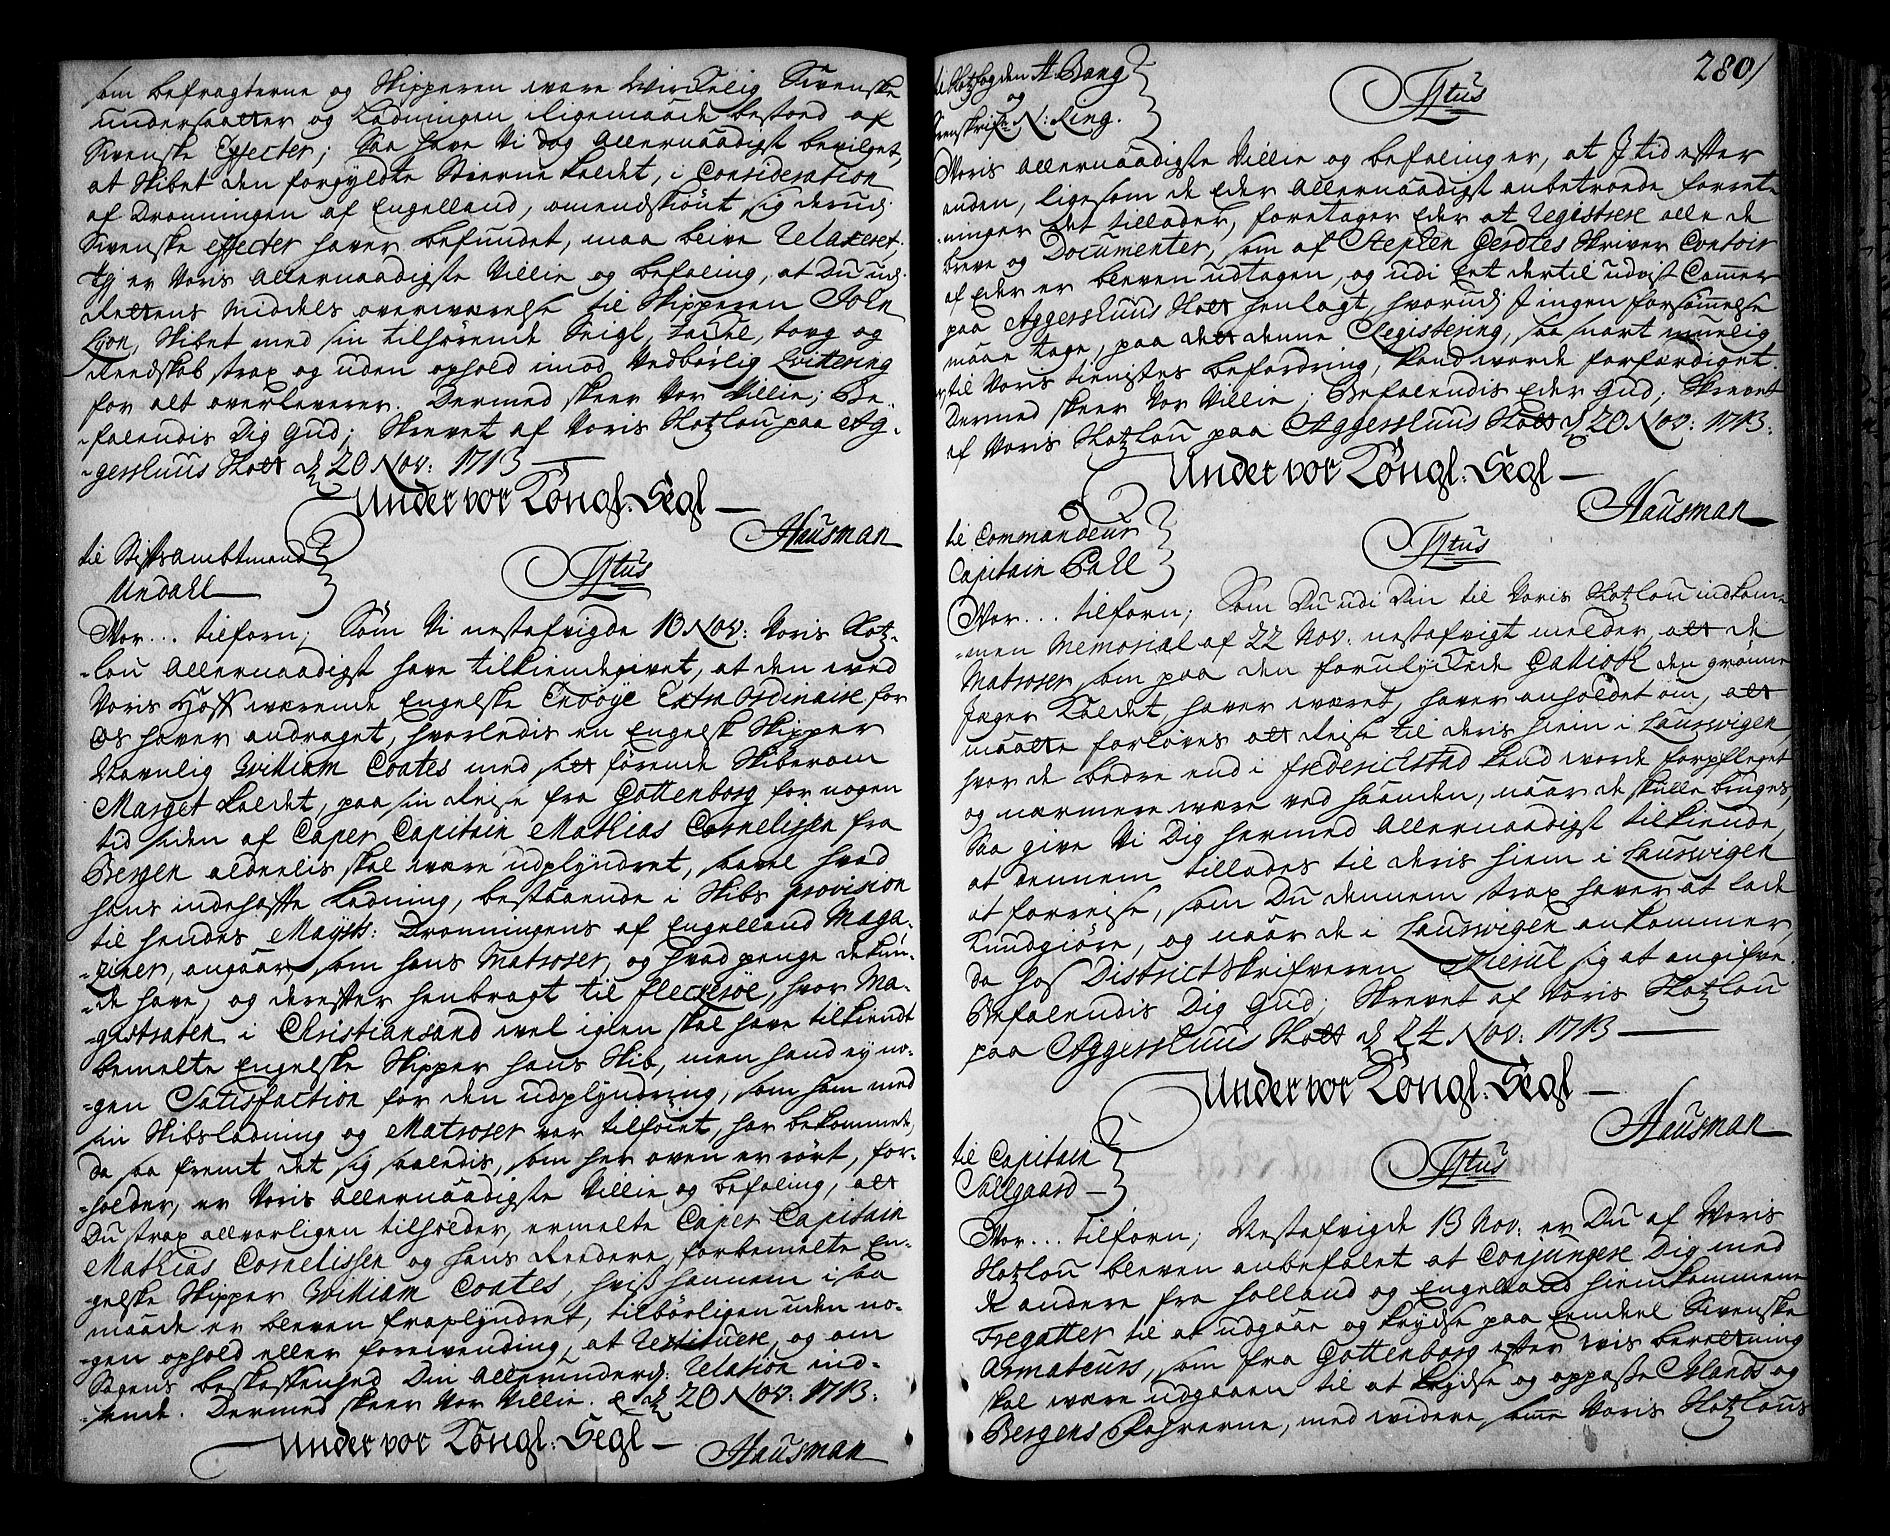 som befragterne og Skipperen ware Wirckelig Swenske
undersaatter og Ladningen iligemaade bestoed af
Swenske Effecter; Saa have Vi dog Allernaadigst bevilget,
at Skibet den forgyldte Stierne kaldet, i Consideration
af Dronningen af Engelland, omendskiønt sig derudj
Swenske effecter haver befundet, maa blive Relaxeret.
Og er Voris Allernaadigste Villie og befaling, at Du udj
Rettens Middels overwærelse til Skipperen John
Lyon, Skibet med sin tilhørende Seigl, tackel, toug og
Reedskab strax og uden ophold imod Vedbørlig Qvittering
for alt overleverer. Dermed skeer Vor Villie; Be-
-falendis Dig Gud; Skrevet af Voris Slotzlou paa Ag-
-gershuus Slott d 20 Nov: 1713 —
Under vor Kongl: Segl —
Hausman
til Stiftsambtmand
Undall —
Titus
Vor... tilforn; Som Vi nestafvigde 13 Nov: Voris Slotz-
-lou Allernaadigst have tilkiendegivet, at den wed
Voris Hoff wærende Engelske Envoye Extra Ordinaire for
Os haver andraget, hvorledis en Engelsk Skipper
Navnlig William Coates med sit førende Skiberom
Marget kaldet, paa sin Reise fra Gottenborg for nogen
tid siden af Caper Capitain Mathias Cornelissen fra
Bergen aldeelis skal være udplyndret, saavel hvad
hans indehafte Ladning, bestaaende i Skibs provision
til hendes Mayst: Dronningens af Engelland Maga-
-ziner, angaar, som hans Matroser, og hvad penge de kun-
-de have, og derefter henbragt til fleckerøe, hvor Ma-
-gistraten i Christiansand wel igien skal have tilkiendt
bemelte Engelske Skipper hans Skib, men hand ey no-
-gen Satisfaction for den udplyndring, som ham med
sin Skibsladning og Matroser var tilføiet, har bekommet,
Da saa fremt det sig saaledis, som her oven er rørt, for-
-holder, er Voris Allernaadigste Villie og befaling, att
Du strax allvorligen tilholder, ermelte Caper Capitain
Mathias Cornelissen og hans Reedere, forbemelte En-
gelske Skipper William Coates, hvis hannem i saa
maade er bleven fraplyndret, tilbørligen uden no-
-gen ophold eller forevending, at Restituere, og om
Sagens beskaffenhed Din Allerunderd: Relation ind-
-sende. Dermed skeer Vor Villie. d 20 Nov: 1713.
Under vor Kongl: Segl —
Hausman
280/
til Slotzfogden H. Bang
og
Grenskrifr N: Ring.
Titus
Voris Allernaadigste Villie og befaling er, at J tid efter
anden, lige som de Eder Allernaadigst anbetroede forret-
-ninger det tillader, foretager Eder at Registrere alle de
breve og Documenter, som af Stephen Gerdtes Skriver Contoir
af Eder er bleven udtagen, og udi Et dertil udvist Cammer
paa Aggershuus Slott henlagt, hvorudj J ingen forsømmelse
maae tage, paa det denne Registering, saa snart muelig
til Voris tienstes befordring, kand worde forfærdiget.
Dermed skeer Vor Villie; Befalendis Eder Gud; Skrevet
af Voris Slotzlou paa Aggershuus Slott d 20 Nov: 1713.
Under vor Kongl: Segl —
Hausman
til Commandeur
Capitain Pall
Titus
Vor... tilforn; Som Du udi Din til Voris Slotzlou indkom-
-men Memorial af 22 Nov: nestafvigt melder, att de
Matroser, som paa den forulyckede Galliott den grønne
Jæger kaldet, haver været, haver anholdet om, att
maatte forløves att Reise til deris hiem i Laurwigen
hvor de bedre end i Frederichstad kand worde forpfleget
og nærmere være ved haanden, naar de skulle bruges,
Saa give Vi Dig hermed Allernaadigst tilkiende,
at dennem tillades til deris hiem i Laurwigen
at forreise, som Du dennem strax haver at lade
kundgiøre, og naar de i Laurwigen ankommer,
da hos Districtskrifveren Kierul sig at angifve.
Befalendis Dig Gud; Skrevet af Voris Slotzlou
paa Aggershuus Slott d 24 Nov: 1713 —
Under vor Kongl: Segl —
Hausman
til Capitain
Tollgaard —
Titus
Vor... tilforn; Nestafvigde 13 Nov: er Du af Voris
Slotzlou bleven anbefalet at Conjungere Dig med
de andere fra Holland og Engelland hiemkommene
Fregatter til at udgaae og krydse paa Eendeel Swenske
Armateurs, som fra Gottenborg efter wis beretning
skal være udgaaen til at krydse og oppasse Islands og
Bergens Fahrerne, med widere, som Voris Slotzlous